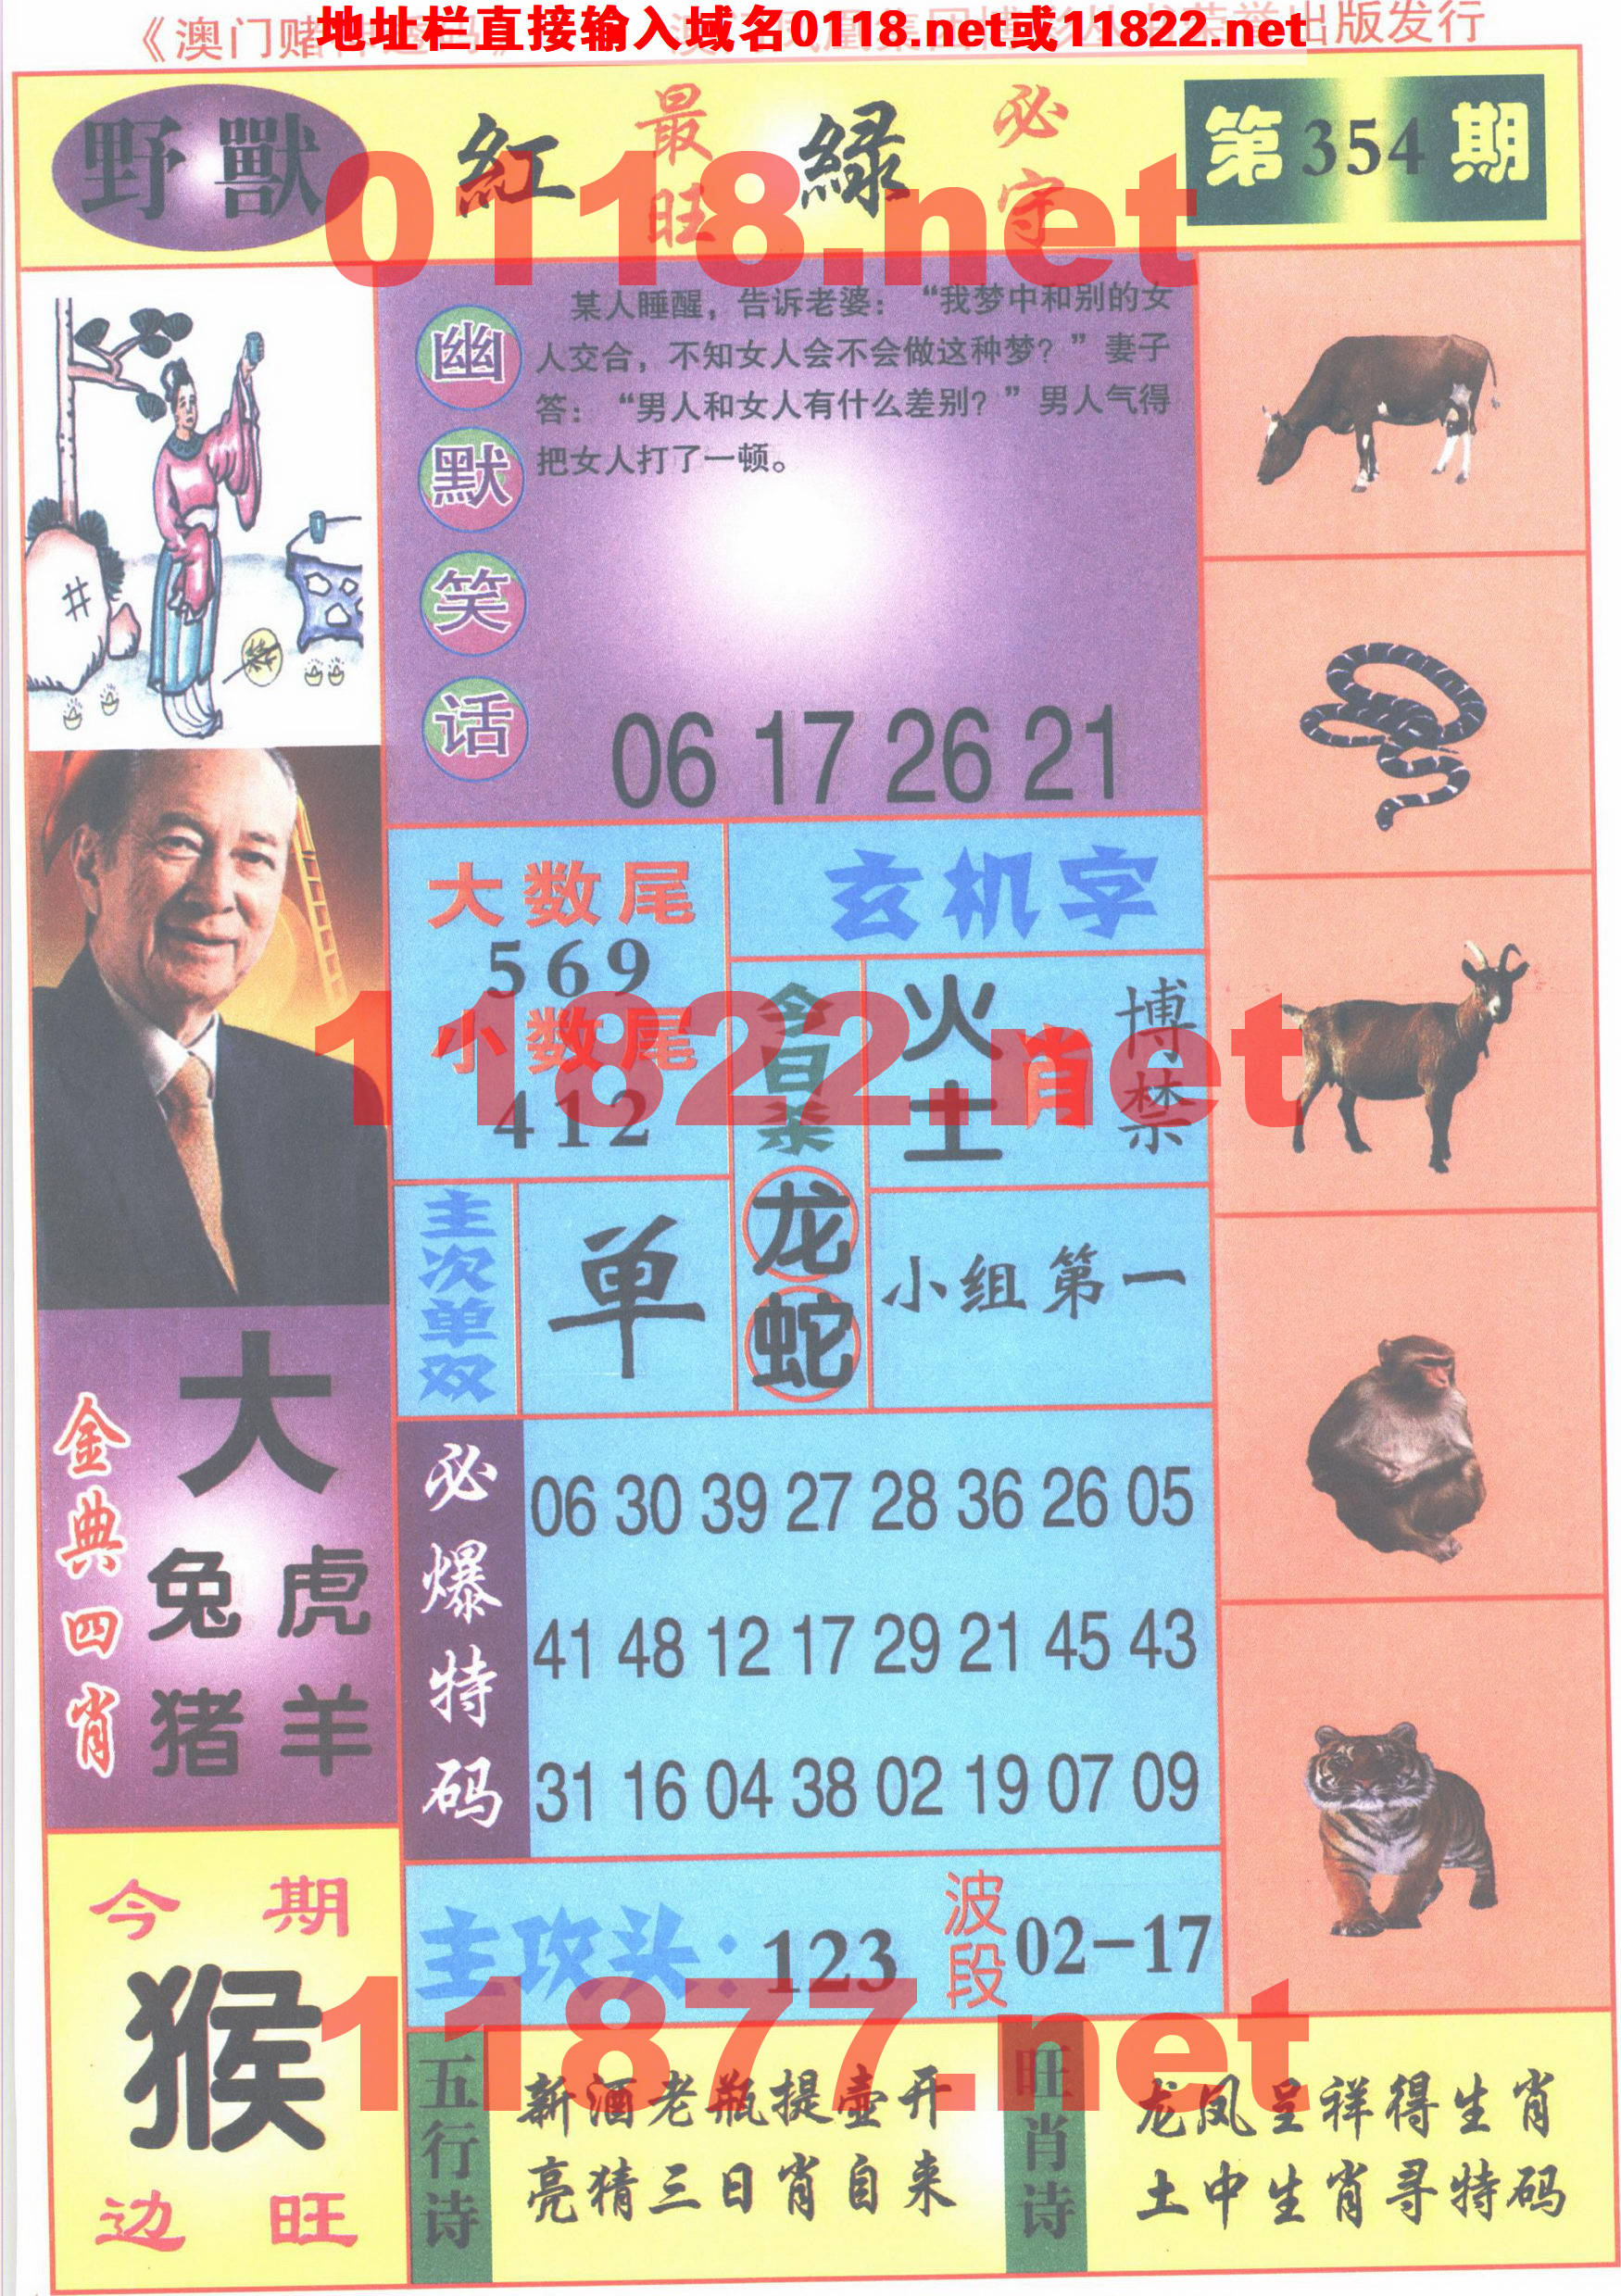 地址栏直接输入域名0118.net或11822.net
《澳门赌
出版发行
野獸
紅
最旺
緑
必守
第354期
0118.net
幽默笑话
某人睡醒，告诉老婆：“我梦中和别的女
人交合，不知女人会不会做这种梦？”妻子
答：“男人和女人有什么差别？”男人气得
把女人打了一顿。
06 17 26 21
大数尾
569
小数尾
412
玄机字
今日杀
龙
蛇
火土
肖
博禁
11822.net
主次单双
单
小组第一
金典四肖
大
兔 虎
猪 羊
必爆特码
06 30 39 27 28 36 26 05
41 48 12 17 29 21 45 43
31 16 04 38 02 19 07 09
今期
猴
边旺
主攻头：123
波段
02-17
11877.net
五行诗
新酒老瓶提壶开
亮猜三日肖自来
旺肖诗
龙凤呈祥得生肖
土中生肖寻特码